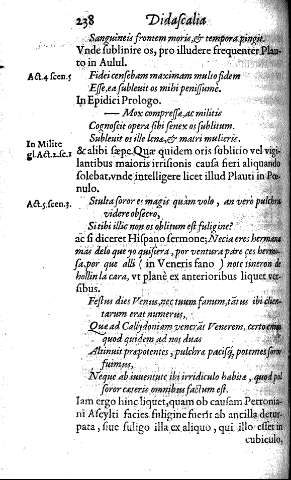 238 Didascalia
Sanguineis frontem moris, & tempora pingit.
Vnde sublinire os, pro illudere frequenter Plau-
to in Aulul.
Act. 4 scen. 5
Fidei censebam maximam multo fidem
Esse, ea subleuit os mihi penissume.
In Epidici Prologo.
— Mox compressæ, ac militis
Cognoscit opera sibi senex os sublitum.
In Milite
gl. Act. 2. sc. 1
Subleuit os ille lenæ, & matri mulieris.
& alibi sæpe. Quæ quidem oris sublitio vel vigi-
lantibus maioris irrisionis causa fieri aliquando
solebat, vnde intelligere licet illud Plauti in Pœ-
nulo.
Act. 5. scen. 3.
Stulta soror es magis quàm volo, an verò pulchra
videre obsecro,
Si tibi illic non os oblitum est fuligine?
ac si diceret Hispano sermone; Necia eres hermana
mas delo que yo quisiera, por ventura pàre ces hermo-
sa, por que alli (in Veneris fano) note tisneron de
hollin la cara, vt planè ex anterioribus liquet ver-
sibus.
Festus dies Venus, nec tuum fanum, tãtus ibi clien-
tarum erat numerus,
Quæ ad Calydoniam venerãt Venerem, certo enim
quod quidem ad nos duas
Attinuit præpotentes, pulchræ pacisq; potentes soror
fuimus,
Neque ab iuuentute ibi irridiculo habitæ, quod pol
soror cæteris omnibus factum est.
Iam ergo hinc liquet, quam ob causam Petronia-
ni Ascylti facies fuligine fuerit ab ancilla detur-
pata, siue fuligo illa ex aliquo, qui illo esset in
cubiculo,